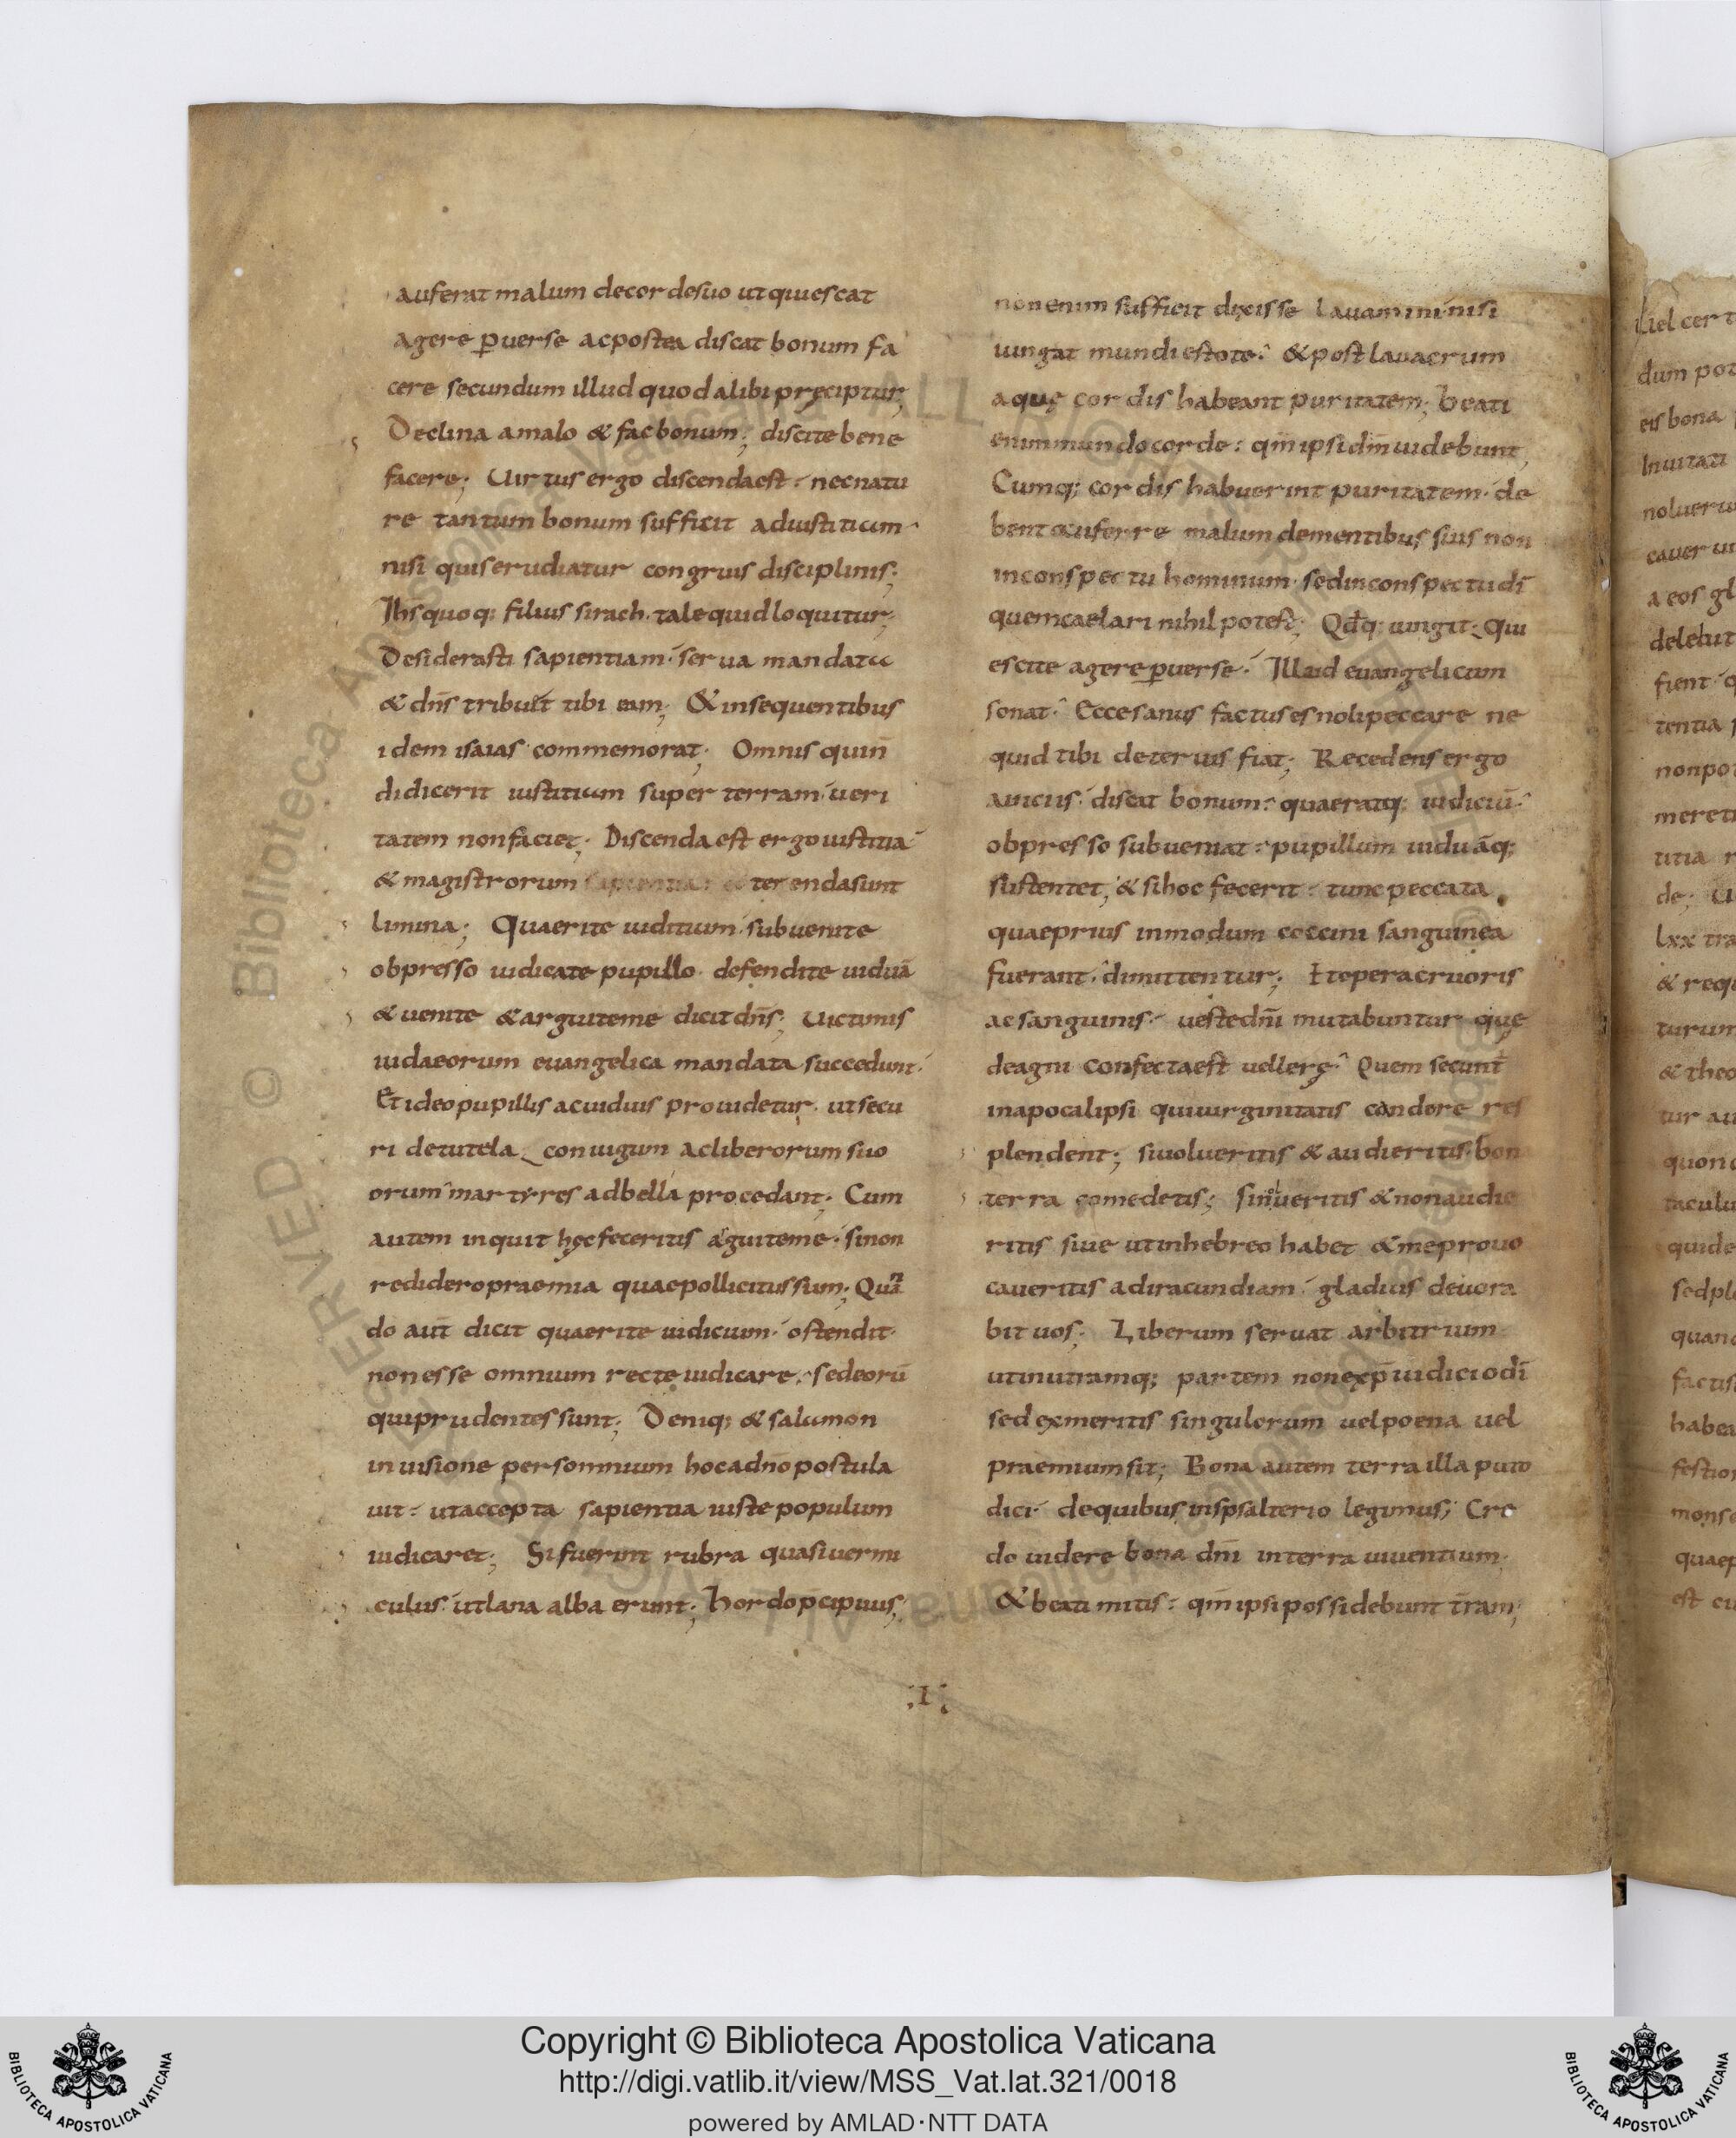 auferat malum de corde suo ut quiescat
agere ꝑuerse ac postea discat bonum fa
cere secundum illud quod alibi pręcipitur;
Declina a malo & fac bonum; discite bene
facere; Uirtus ergo discenda est· nec natu
re tantum bonum sufficit ad iustitiam·
nisi quis erudiatur congruis disciplinis;
Ihs̄ quoq; filius sirach· tale quid loquitur;
Desiderasti sapientiam· serua mandata
& dn̄s tribuit tibi eam; & in sequentibus
idem isaias commemorat; Omnis qui n̄
didicerit iustitiam super terram· ueri
tatem non faciet; Discenda est ergo iustitia
& magistrorum terenda sunt
limina; Quaerite iuditium· subuenite
obpresso iudicate pupillo· defendite uiduā
& uenite & arguite me dicit dn̄s; Uictimis
iudaeorum euangelica mandata succedunt·
Et ideo pupillis ac uiduis prouidetur· ut secu
ri de tutela coniugum ac liberorum suo
orum martyres ad bella procedant; Cum
autem inquit hęc feceritis arguite me· si non
redidero praemia quae pollicitus sum; Quan
do aut̄ dicit quaerite iudicium· ostendit·
non esse omnium recte iudicare· sed eorū
qui prudentes sunt; Deniq; & salamon
in uisione per somnium hoc a dn̄o postula
uit· ut accepta sapientia iuste populum
iudicaret; Si fuerint rubra quasi uermi
culus· ut lana alba erunt; hor do p̄cipuus;
non enim sufficit dixisse lauamini· nisi
iungat mundi estote· & post lauacrum
aquę cordis habeant puritatem; beati
enim mundo corde: qm̄ ipsi dm̄ uidebunt,
Cumq; cordis habuerint puritatem· de
bent auferre malum de mentibus suis non
in conspectu hominum· sed in conspectu dī
quem caelari nihil potest; Qđq; iungit· Qui
escite agere ꝑuerse· Illud euangelicum
sonat· Ecce sanus factus es noli peccare ne
quid tibi deterius fiat; Recedens ergo
a uiciis· discat bonum· quaeratq; iudiciū·
obpresso subueniat· pupillum uiduāq;
sustentet, & si hoc fecerit· tunc peccata
quae prius in modum coccini sanguinea
fuerant· dimittentur; Et opera cruoris
ac sanguinis· ueste dn̄i mutabuntur quę
de agni confecta est uellerę· Quem secunt̄
in apocalipsi qui uirginitatis candore res
plendent; si uolueritis & audieritis· bon
terra comedetis; si nolueritis & non audie
ritis siue ut in hebreo habet & me prouo
caueritis ad iracundiam· gladius deuora
bit uos; Liberum seruat arbitrium·
ut in utramq; partem non ex p̄iudicio dī
sed ex meritis singulorum uel poena uel
praemium sit; Bona autem terra illa puto
dici· de quibus in spsalterio legimus; Cre
do uidere bona dn̄i in terra uiuentium·
& beati mitis· qm̄ ipsi possidebunt t̄ram;
;I;
Copyright © Biblioteca Apostolica Vaticana
http://digi.vatlib.it/view/MSS_Vat.lat.321/0018
powered by AMLAD·NTT DATA
BIBLIOTECA APOSTOLICA VATICANA
BIBLIOTECA APOSTOLICA VATICANA